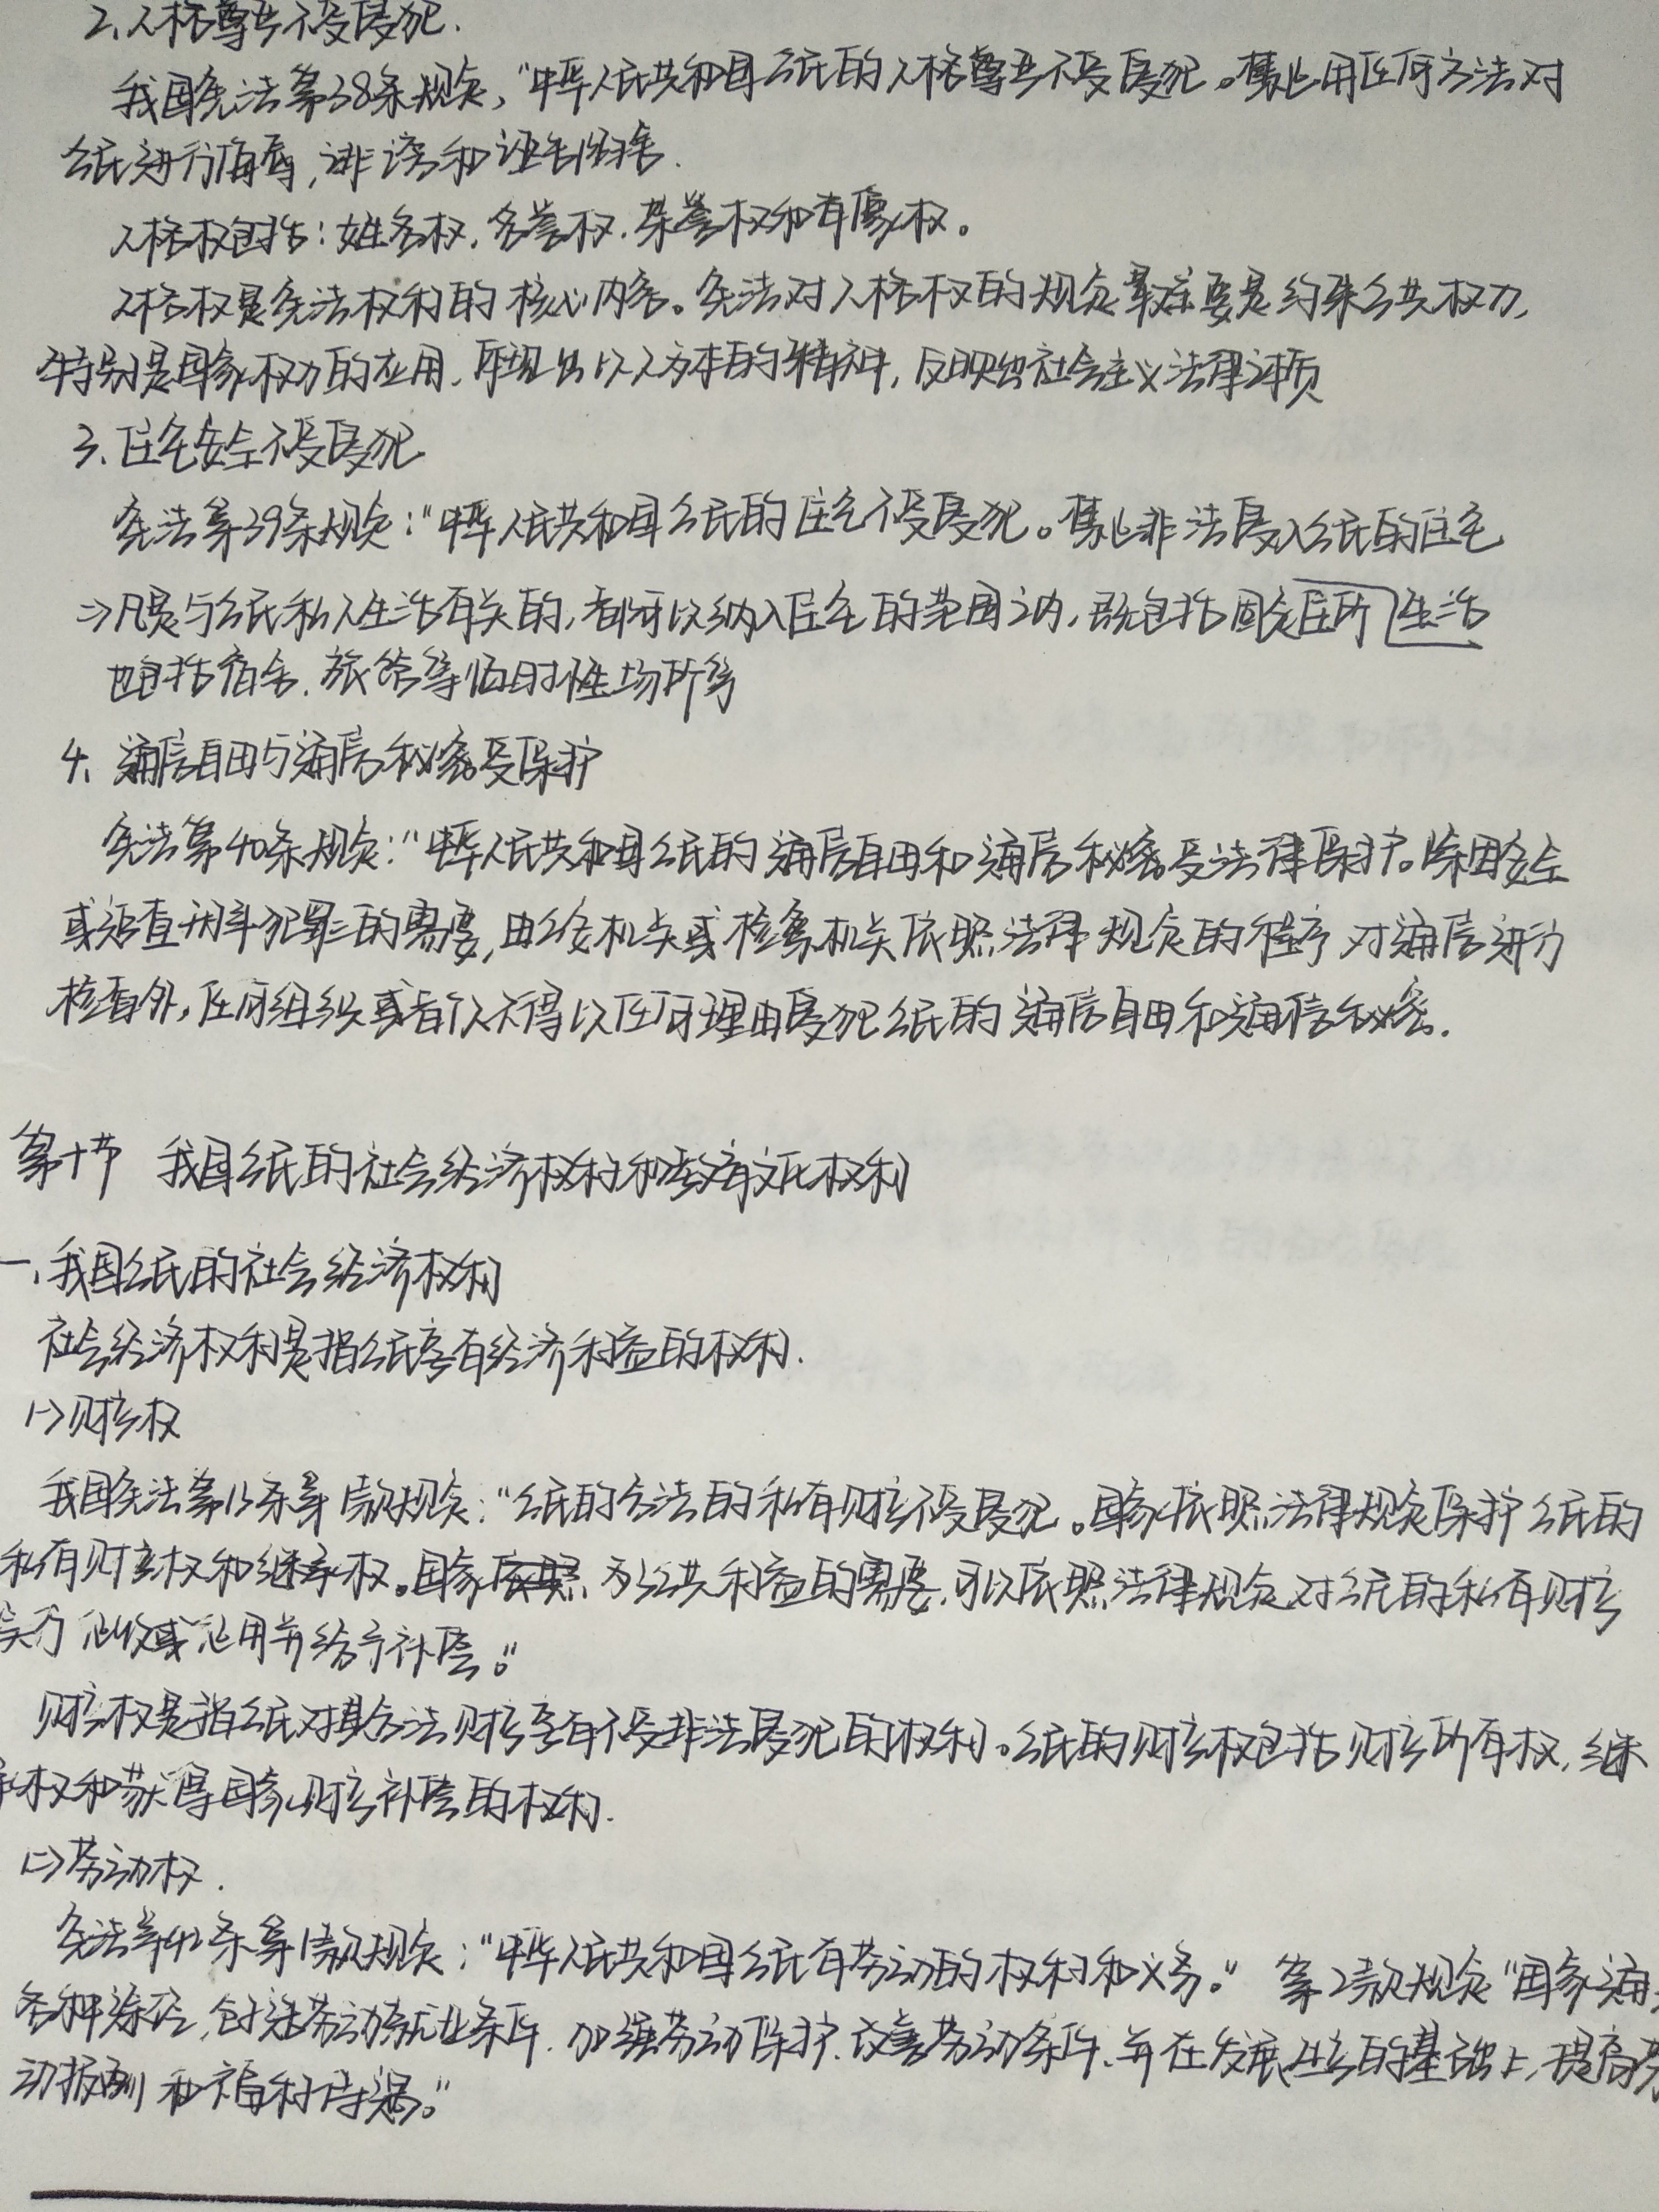 2、人格尊严不受侵犯.
我国宪法第38条规定，“中华人民共和国公民的人格尊严不受侵犯。禁止用任何方法对
公民进行侮辱，诽谤和诬告陷害.
人格权包括：姓名权，名誉权，荣誉权和肖像权。
人格权是宪法权利的核心内容。宪法对人格权的规定主要是约束公共权力，
特别是国家权力的应用，体现出以人为本的精神，反映出社会主义法律本质
3、住宅安全不受侵犯
宪法第39条规定：“中华人民共和国公民的住宅不受侵犯。禁止非法侵入公民的住宅
⇒凡是与公民私人生活有关的，都可以纳入住宅的范围之内，既包括固定住所 生活
也包括宿舍、旅馆等临时性场所等
4、通信自由与通信秘密受保护
宪法第40条规定：“中华人民共和国公民的通信自由和通信秘密受法律保护。除因安全
或追查刑事犯罪的需要，由公安机关或检察机关依照法律规定的程序对通信进行
检查外，任何组织或者个人不得以任何理由侵犯公民的通信自由和通信秘密.
第十节 我国公民的社会经济权利和教育文化权利
一、我国公民的社会经济权利
社会经济权利是指公民享有经济利益的权利.
(一)财产权
我国宪法第13条第1款规定：“公民的合法的私有财产不受侵犯。国家依照法律规定保护公民的
私有财产权和继承权。国家为公共利益的需要，可以依照法律规定对公民的私有财产
实行征收或征用并给予补偿。”
财产权是指公民对其合法财产享有不受非法侵犯的权利。公民的财产权包括财产所有权，继
承权和获得国家财产补偿的权利.
(二)劳动权.
宪法第42条第1款规定：“中华人民共和国公民有劳动的权利和义务。” 第2款规定“国家通
各种途径，创造劳动就业条件，加强劳动保护，改善劳动条件，并在发展生产的基础上，提高劳
动报酬和福利待遇。”